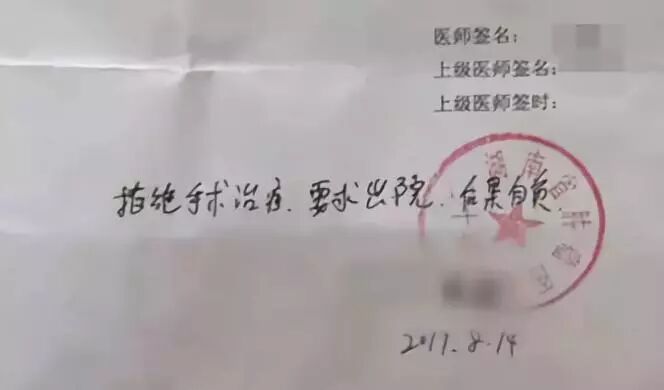 医师签名:
上级医师签名:
上级医师签时:
拒绝手术治疗.要求出院.后果自负.
湖南省肿瘤医
2017.8.14